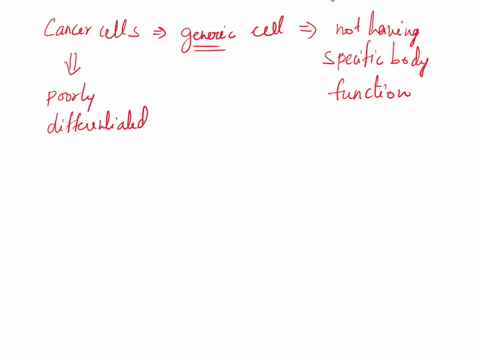 Cancer cells ⇒ generic cell ⇒ not having
specific body
function
⇓
poorly
differentiated